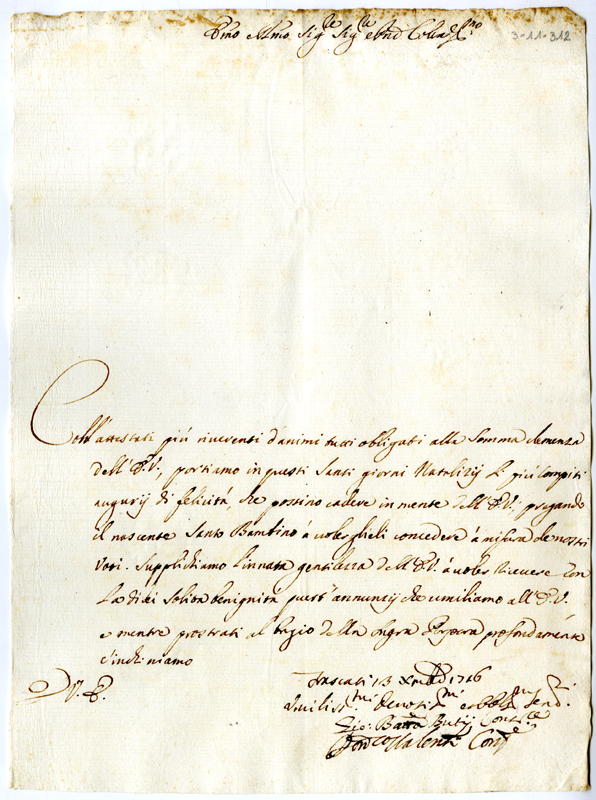 Emo e Rmo Sig.re Sig.re e Pnd Colmo
3-11-312
Coll'attestati più riverenti d'animi tutti obligati alla somma clemenza
dell'E.V., portiamo in questi Santi giorni Natalizij li più compiti
augurij di felicità, che possino cadere in mente dell'E.V., pregando
il nascente Santo Bambino à volerglieli concedere à misura de nostri
voti. Supplichiamo l'innata gentilezza dell'E.V. à voler ricevere con
la di lei solita benignità quest'annunzij che umiliamo all'E.V.
e mentre prostrati al bagio della Sagra Porpora profondamente
c'inchiniamo
D V. E.
Frascati 13 Xmbre 1716
Umilissmi Devotismi et obblmi Serv.
Gio: Batta Butij Conf.re